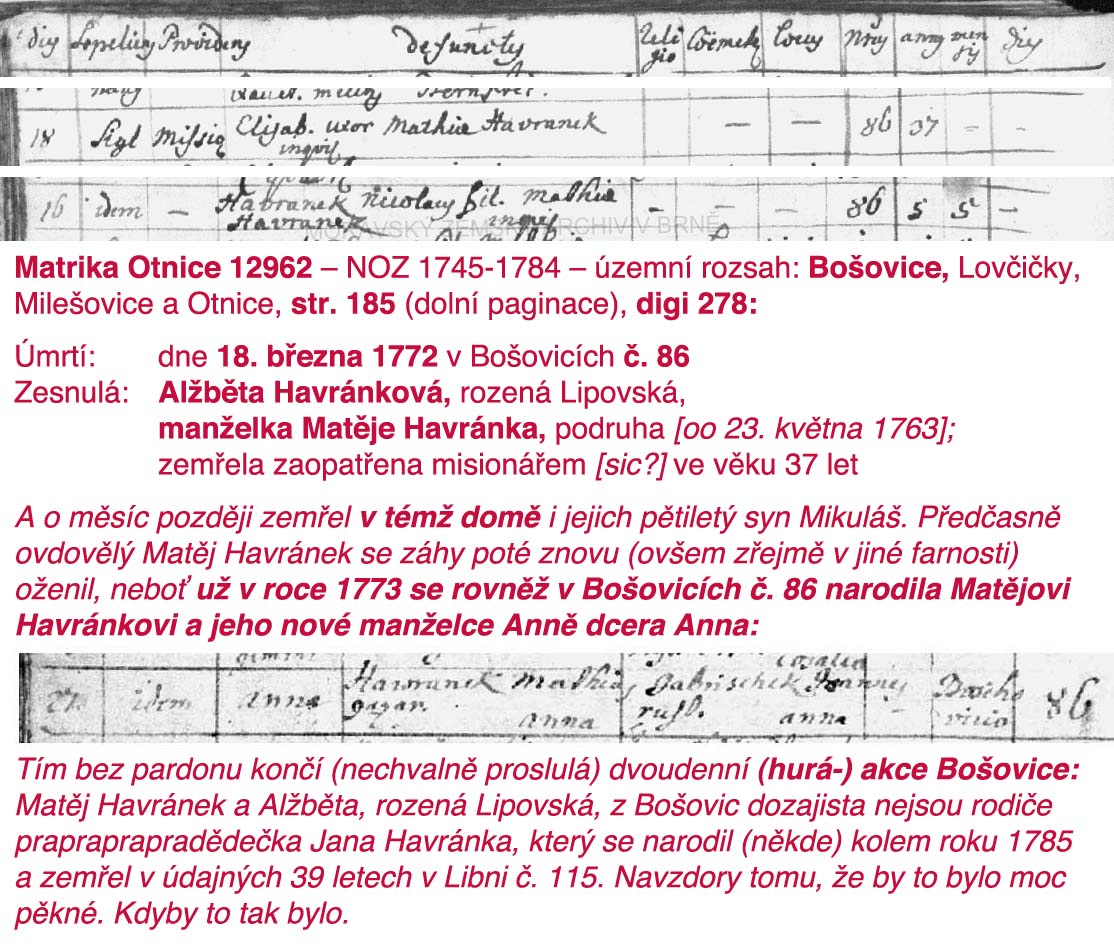 dies Sepeliens Providens defunctus Religio Coemet. locus Nrus annus mensis dies
18 Sigl Missio Elisab. uxor Mathiae Havranek — — 86 37 – –
inquil
16 idem – Havranek Nicolaus fil. Mathiae – – – 86 5 5 –
Havranek inquil
MORAVSKÝ ZEMSKÝ ARCHIV V BRNĚ
Matrika Otnice 12962 – NOZ 1745-1784 – územní rozsah: Bošovice, Lovčičky,
Milešovice a Otnice, str. 185 (dolní paginace), digi 278:
Úmrtí: dne 18. března 1772 v Bošovicích č. 86
Zesnulá: Alžběta Havránková, rozená Lipovská,
manželka Matěje Havránka, podruha [oo 23. května 1763];
zemřela zaopatřena misionářem [sic?] ve věku 37 let
A o měsíc později zemřel v témž domě i jejich pětiletý syn Mikuláš. Předčasně
ovdovělý Matěj Havránek se záhy poté znovu (ovšem zřejmě v jiné farnosti)
oženil, neboť už v roce 1773 se rovněž v Bošovicích č. 86 narodila Matějovi
Havránkovi a jeho nové manželce Anně dcera Anna:
27 idem anna Hawranek Mathias Gabrischek Joannes Boscho 86
gazar. anna rusl. anna vicio
Tím bez pardonu končí (nechvalně proslulá) dvoudenní (hurá-) akce Bošovice:
Matěj Havránek a Alžběta, rozená Lipovská, z Bošovic dozajista nejsou rodiče
prapraprapradědečka Jana Havránka, který se narodil (někde) kolem roku 1785
a zemřel v údajných 39 letech v Libni č. 115. Navzdory tomu, že by to bylo moc
pěkné. Kdyby to tak bylo.